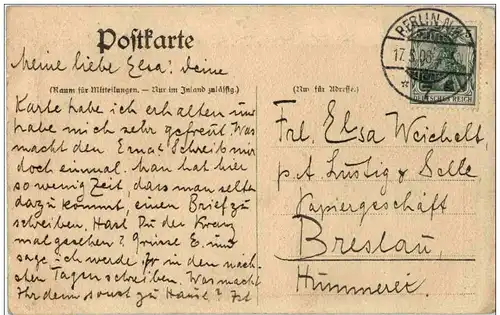 Postkarte
Meine liebe Elsa! Deine
(Raum für Mitteilungen. — Nur im Inland zulässig.)
Karte habe ich erhalten und
habe mich sehr gefreut. Was
macht den Erna? Schreib mir
doch einmal. Man hat hier
so wenig Zeit, dass man selten
dazu kommt, einen Brief zu
schreiben. Hast Du der Kranz
mal gesehen? Grüsse E. und
sage ich werde ihr in den näch-
sten Tagen schreiben. Was macht
Ihr denn sonst zu Haus? Ist
BERLIN N.W.
17.8.08
DEUTSCHES REICH
(Nur für Adresse.)
Frl. Elsa Weichelt,
p. A. Lustig & Selle
Papiergeschäft
Breslau,
Hummerei.